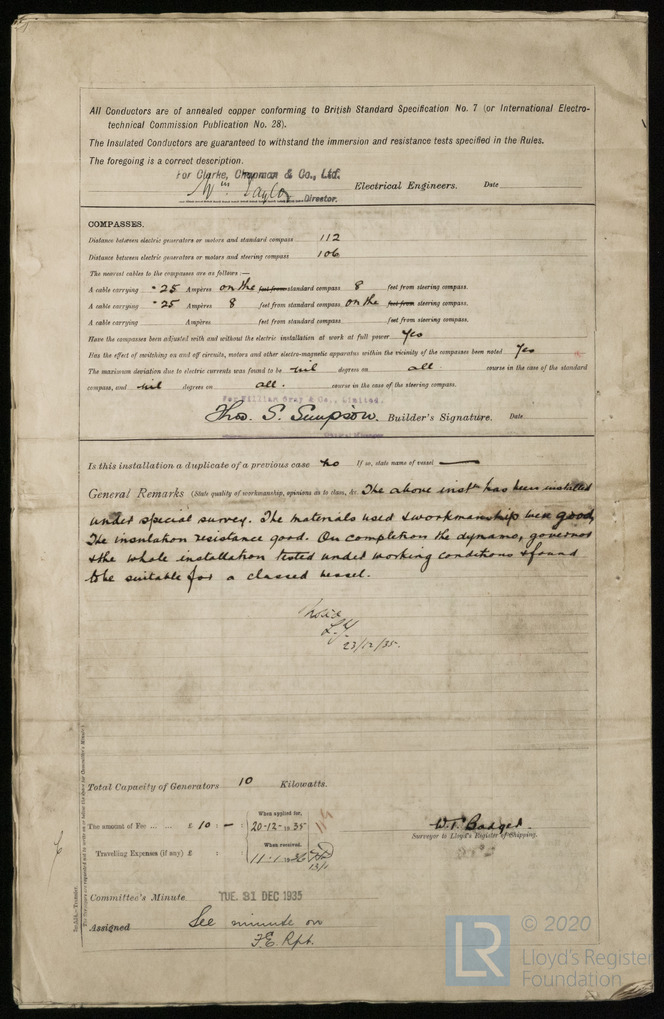 All Conductors are of annealed copper conforming to British Standard Specification No. 7 (or International Electro-
technical Commission Publication No. 28).
The Insulated Conductors are guaranteed to withstand the immersion and resistance tests specified in the Rules.
The foregoing is a correct description.
For Clarke, Chapman & Co., Ltd.
Wm Taylor Electrical Engineers. Date
Director.
COMPASSES.
Distance between electric generators or motors and standard compass 112
Distance between electric generators or motors and steering compass 106
The nearest cables to the compasses are as follows:—
A cable carrying .25 Ampères on the feet from standard compass 8 feet from steering compass.
A cable carrying .25 Ampères 8 feet from standard compass on the feet from steering compass.
A cable carrying Ampères feet from standard compass feet from steering compass.
Have the compasses been adjusted with and without the electric installation at work at full power Yes
Has the effect of switching on and off circuits, motors and other electro-magnetic apparatus within the vicinity of the compasses been noted Yes
The maximum deviation due to electric currents was found to be nil degrees on all course in the case of the standard
compass, and nil degrees on all. course in the case of the steering compass.
For William Gray & Co., Limited.
Thos. S. Simpson. Builder's Signature. Date
Is this installation a duplicate of a previous case no If so, state name of vessel —
General Remarks (State quality of workmanship, opinions as to class, &c. The above instn has been installed
under special survey. The materials used & workmanship were good,
The insulation resistance good. On completion the dynamo, governor
& the whole installation tested under working conditions & found
to be suitable for a classed vessel.
23/12/35.
Total Capacity of Generators 10 Kilowatts.
The amount of Fee ... ... £ 10 : — : When applied for, 20-12-1935
W.T. Badger.
Surveyor to Lloyd's Register of Shipping.
Travelling Expenses (if any) £ : : When received, 11.1.1936
13/1
Committee's Minute TUE. 31 DEC 1935
Assigned See minute on
F.E. Rpt.
LR © 2020
Lloyd's Register
Foundation